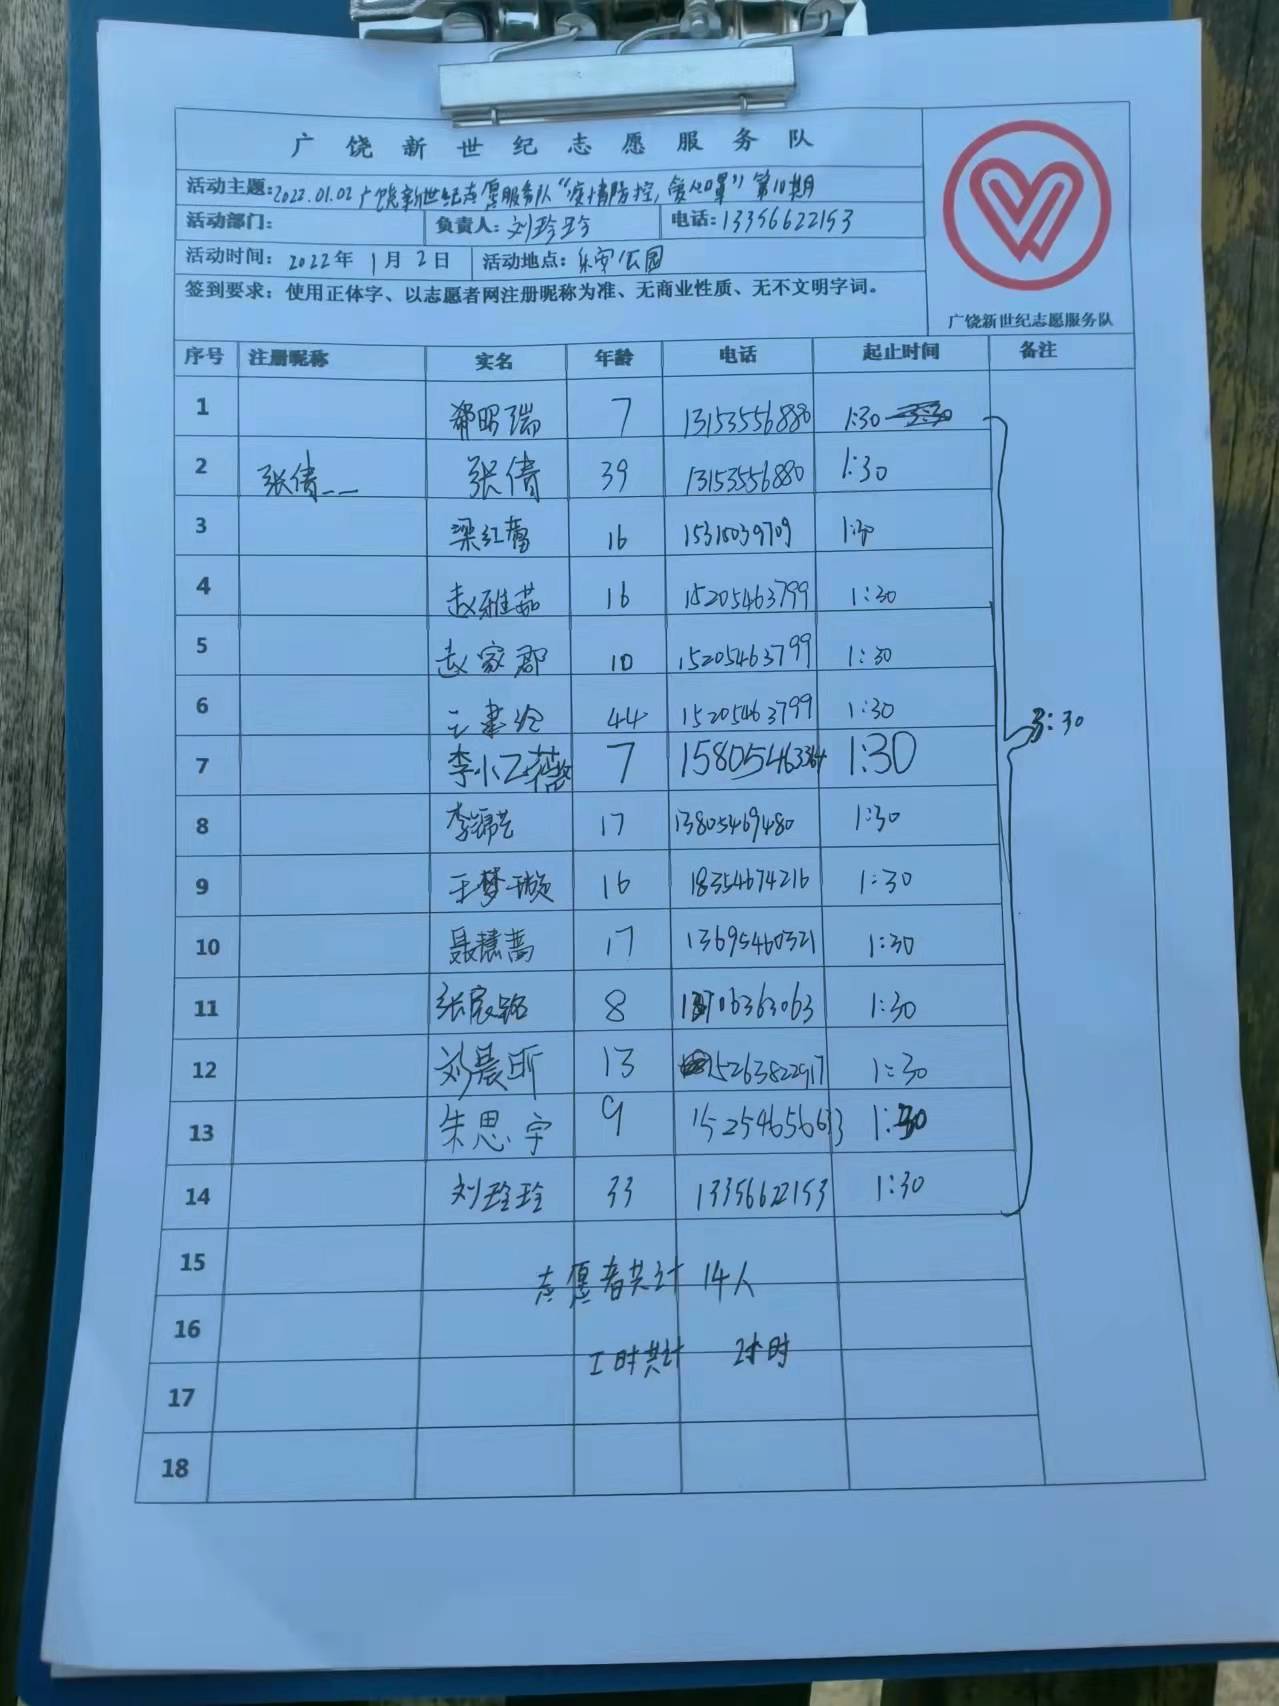 广饶新世纪志愿服务队
活动主题:2022.01.02广饶新世纪志愿服务队“疫情防控,爱心口罩”第10期
活动部门: 负责人:刘玲玲 电话:13356622153
活动时间: 2022年 1月 2日 活动地点:乐安公园
签到要求: 使用正体字、以志愿者网注册昵称为准、无商业性质、无不文明字词。
广饶新世纪志愿服务队
序号 注册昵称 实名 年龄 电话 起止时间 备注
1 昭瑞 7 13153556880 1:30
2 张倩__ 张倩 39 13153556880 1:30
3 梁红蕾 16 1:30
4 赵雅茹 16 15205463799 1:30
5 赵家郡 10 15205463799 1:30
6 王 44 15205463799 1:30
3:30
7 李小乙薇 7 15805463364 1:30
8 李锦艺 17 13805469480 1:30
9 王梦璇 16 18354674216 1:30
10 聂慧蕾 17 13695460321 1:30
11 张宸铭 8 1:30
12 刘晨昕 13 15263822917 1:30
13 朱思宇 9 1:30
14 刘玲玲 33 13356622153 1:30
15
志愿者共计 14人
16
工时共计 2小时
17
18